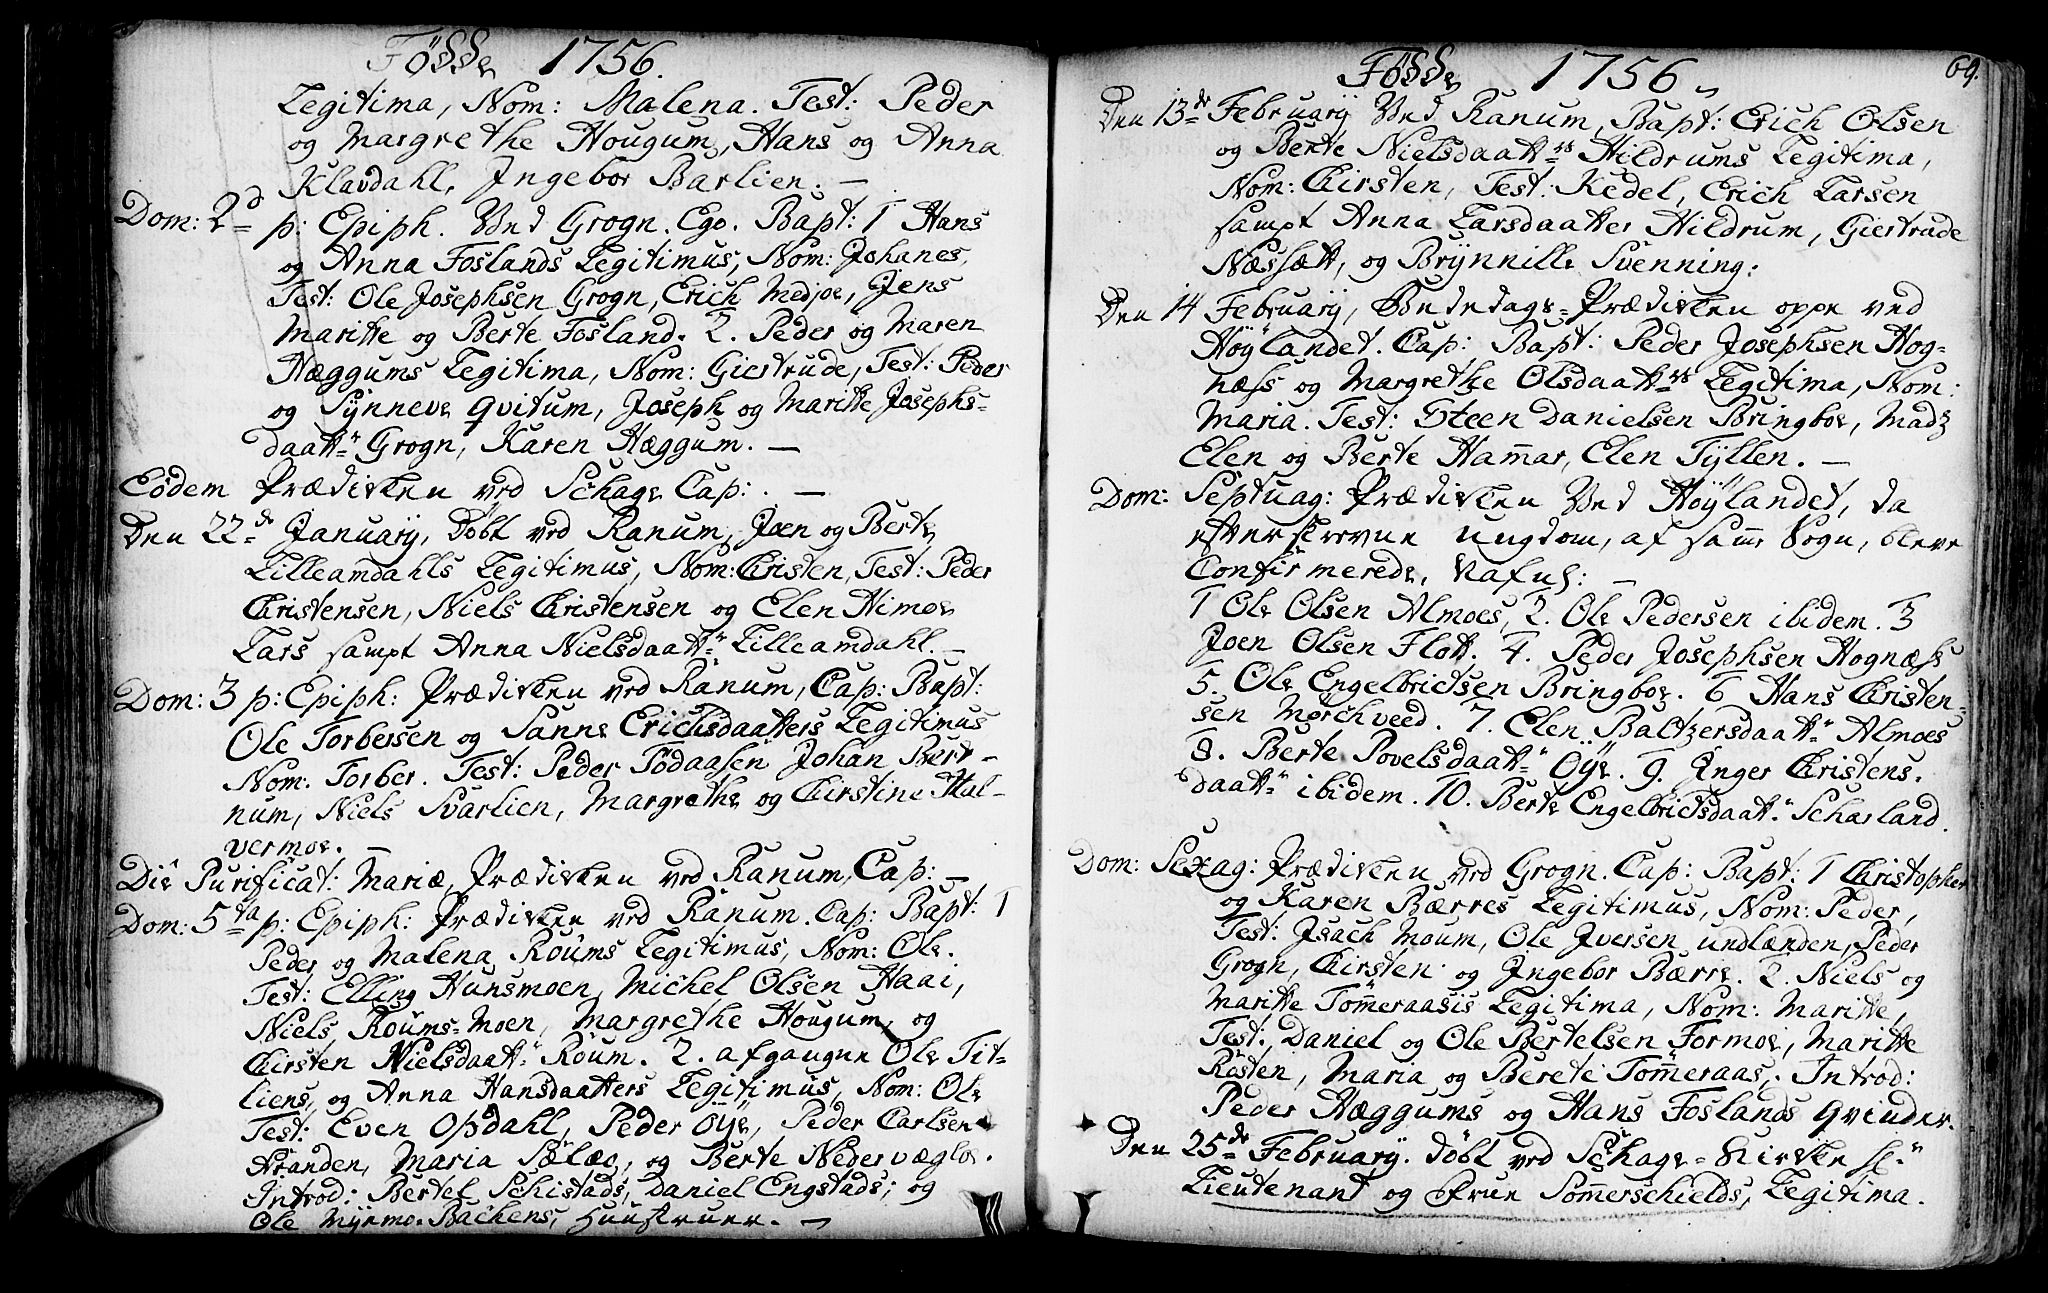 Fødde 1756.
Legitima, Nom: Malena. Test: Peder
og Margrethe Hougum, Hans og Anna
Klavdahl, Ingebor Barlien. —
Dom: 2d p: Epiph. Ved Grogn. Ego. Bapt: 1 Hans
og Anna Foslands Legitimus, Nom: Johanes,
Test: Ole Josephsen Grogn, Erich Medjoe, Jens
Maritte og Berte Fosland. 2. Peder og Maren
Hæggums Legitima, Nom: Giertrude, Test: Peder
og Synneve Qvitum, Joseph og Maritte Josephs-
daatt" Grogn, Karen Hæggum. —
Eodem Prædicken ved Schage Cap: . —
Den 22de Januarÿ, Døbt ved Ranum, Joen og Berte
Lilleamdahls Legitimus, Nom: Christen, Test: Peder
Christensen, Niels Christensen og Elen Himoe
Lars sampt Anna Nielsdaatt" Lilleamdahl. —
Dom: 3 p: Epiph: Prædicken ved Ranum, Cap: Bapt:
Ole Torbersen og Sanne Erichsdaatters Legitimus
Nom: Torber. Test: Peder Tødaasen Johan Bert-
num, Niels Svarlien, Margrethe og Chirstine Hal-
vermoe. —
Die Purificat: Mariæ, Prædicken ved Ranum, Cap: —
Dom: 5ta p: Epiph: Prædicken ved Ranum. Cap: Bapt: 1
Peder og Malena Roüms Legitimus, Nom: Ole.
Test: Elling Hunsmoen, Michel Olsen Haai,
Niels Roüms-Moen, Margrethe Hougum, og
Chirsten Nielsdaatt" Roüm. 2. afgangne Ole Tit-
liens, og Anna Hansdaatters Legitimus, Nom: Ole
Test: Even Opdahl, Peder Øÿe, Peder Carlsen
Stranden, Maria Sæloe, og Berte Nedervægloe.
Introd: Bertel Schistads, Daniel Engstads; og
Ole Myrmo-Bachens, Huustruer. —
Fødde 1756. 69.
Den 13de Februarÿ Ved Ranum, Bapt: Erich Olsen
og Berte Nielsdaattrs Hildrums Legitima,
Nom: Chirsten, Test: Kedel, Erich Larsen
sampt Anna Larsdaatter Hildrum, Giertrude
Næssætt, og Brÿnnille Svenning:
Den 14 Februarÿ, Bededags-Prædicken oppe ved
Høÿlandet. Cap: Bapt: Peder Josephsen Hog-
næss og Margrethe Olsdaattrs Legitima, Nom:
Maria. Test: Steen Danielsen Bringboe, Madz
Elen og Berte Hammar, Elen Tÿllen. —
Dom: Septuag: Prædicken Ved Høÿlandet, da
efterskrevne Ungdom, af samme Sogn, bleve
Confirmerede, Nafnl: —
1 Ole Olsen Almoes, 2. Ole Pedersen ibidem. 3
Joen Olsen Flott. 4. Peder Josephsen Hognæss
5. Ole Engelbrictsen Bringboe. 6 Hans Christen-
sen Morchveed. 7. Elen Baltzersdaatt" Almoes
8. Berte Povelsdaatt" Øÿe. 9. Inger Christens-
daatt" ibidem. 10. Berte Engelbrictsdaatt" Scharland.
Dom: Sexag: Prædicken ved Grogn. Cap: Bapt: 1 Christopher
og Karen Bærres Legitimus, Nom: Peder,
Test: Isach Moum, Ole Iversen undlænden, Peder
Grogn, Chirsten og Ingebor Bærre. 2. Niels og
Maritte Tømmeraasis Legitima, Nom: Maritte,
Test: Daniel og Ole Bertelsen Formoe, Maritte
Røsten, Maria og Berete Tømmeraas. Introd:
Peder Hæggums og Hans Foslands Qvinder.
Den 25de Februarÿ. Døbt ved Schage-Kircke Hr."
Lieutenant og Frue Sommerschields, Legitima.